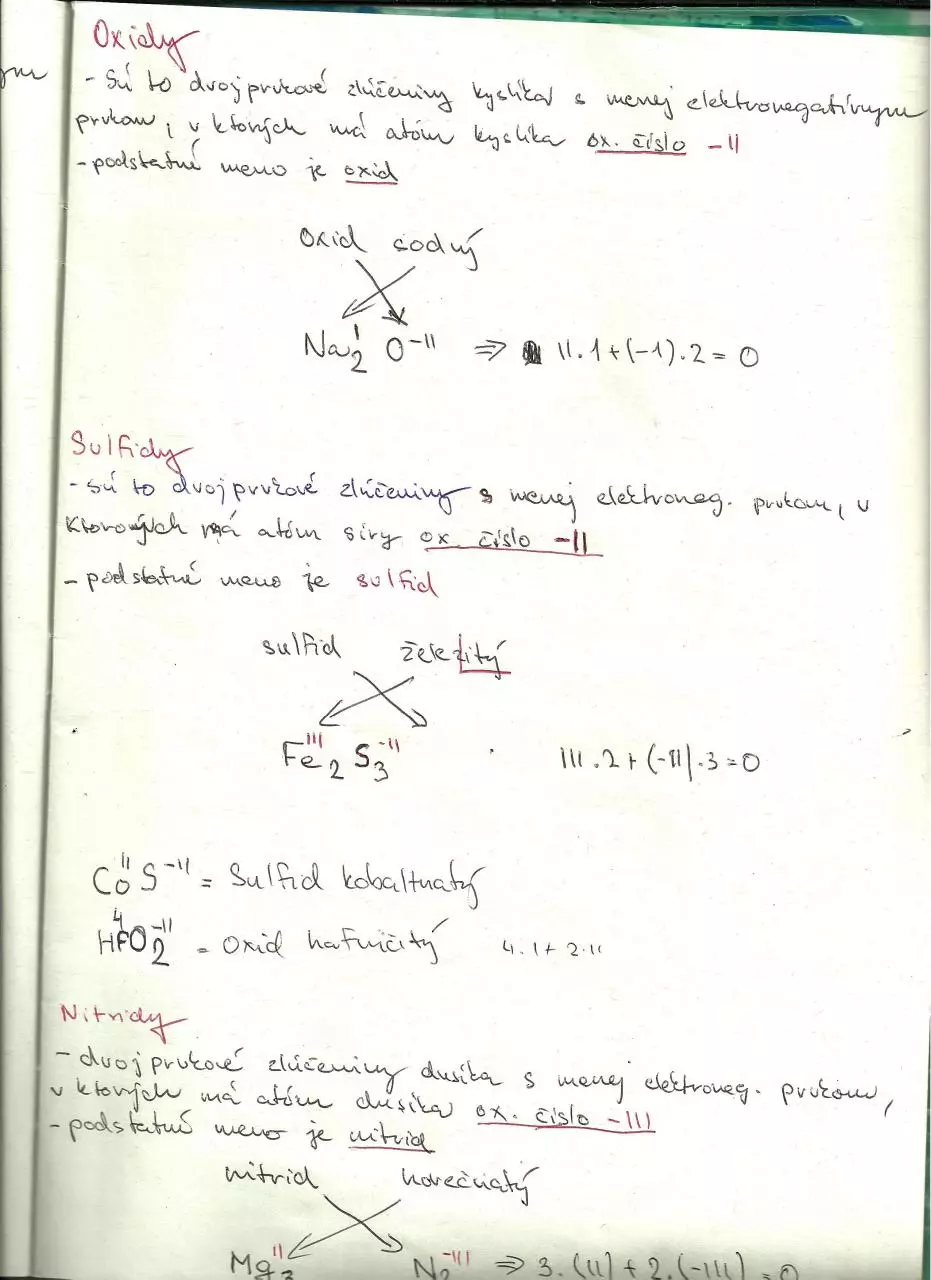 Oxidy
- Sú to dvojprvkové zlúčeniny kyslíka s menej elektronegatívnym
prvkom, v ktorých má atóm kyslíka ox. číslo -II
- podstatné meno je oxid
Oxid sodný
Na₂ᴵ O⁻ᴵᴵ ⇒ II.1+(-1).2=0
Sulfidy
- sú to dvojprvkové zlúčeniny s menej elektroneg. prvkom, v
ktorých má atóm síry ox. číslo -II
- podstatné meno je sulfid
sulfid železitý
Fe₂ᴵᴵᴵ S₃⁻ᴵᴵ III.2+(-II).3=0
CoᴵᴵS⁻ᴵᴵ = Sulfid kobaltnatý
Hf⁴O₂⁻ᴵᴵ = Oxid hafničitý 4.1+2.II
Nitridy
- dvojprvkové zlúčeniny dusíka s menej elektroneg. prvkom,
v ktorých má atóm dusíka ox. číslo -III
- podstatné meno je nitrid
nitrid horečnatý
Mg₃ᴵᴵ N₂⁻ᴵᴵᴵ ⇒ 3.(II)+2.(-III)=0